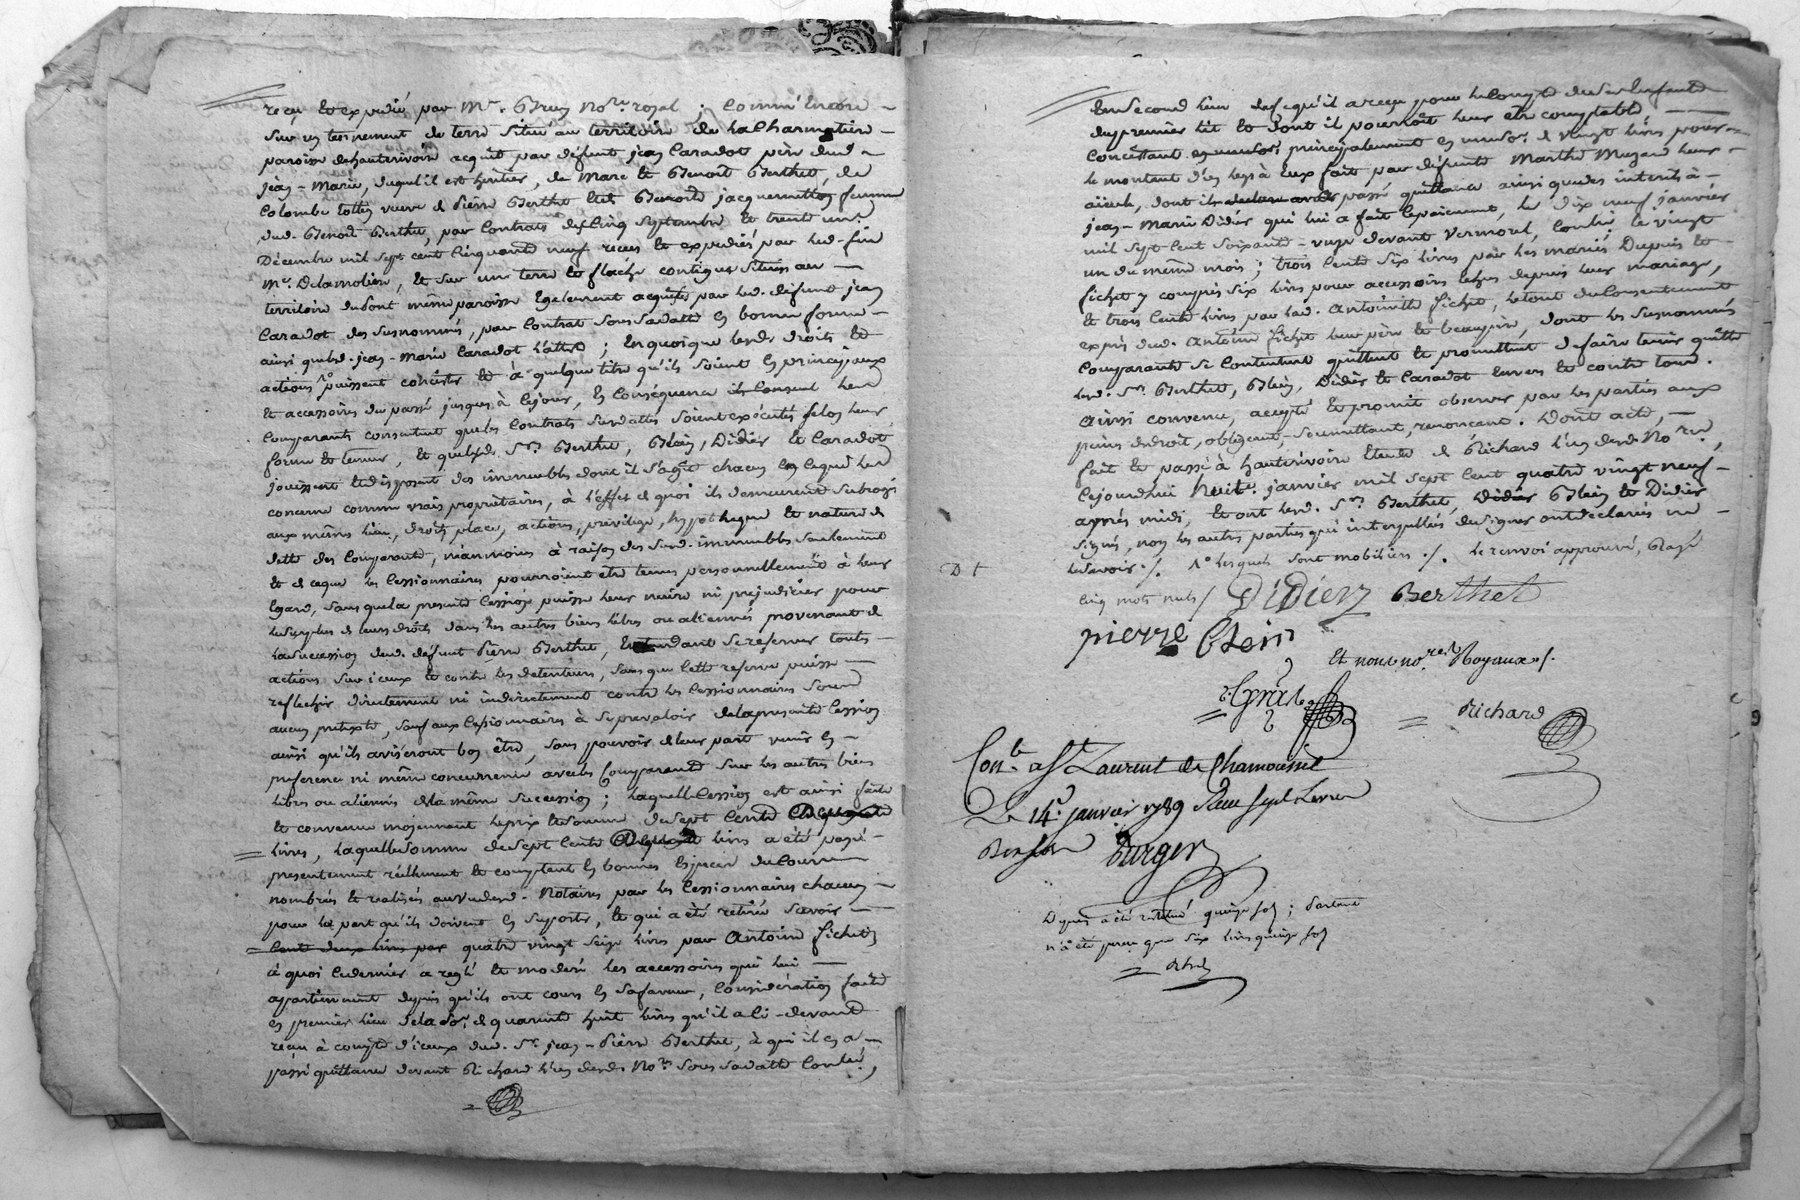 reçu et expedié par Me. Brun Nore. royal. Comm'encore
sur un tennement de terre situé au territoire de la Charmatiere
paroisse d'hauterivoire acquit par défunt jean Caradot père dud.
jean-Marie, duquel il est héritier, de Marc et Benoit Berthet, de
Colombe veuve de Pierre Berthet et de Benoite jacquemetton femme
dud. Benoit Berthet, par Contrats des Cinq Septembre et trente un
Décembre mil sept cent Cinquante neuf recus et expediés par led. feu
Me. Delamoliere, et sur un terre et flache contigus situés au
territoire du font même paroisse Egalement acquise par led. défunt jean
Caradot des susnommés, par Contrat sous sa datte en bonne forme
ainsi que led. jean-Marie Caradot l'atteste ; En quoique lesds. droits et
actions 1o puissent consister et à quelque titre qu'ils soient en principaux
et accessoires du passé jusques à ce jour, En Conséquence ils Consent lesd.
Comparants consentent que les Contrats susdattés soient exécutés selon leur
forme et teneur, et que lesds. Srs. Berthet, Blein, Didier et Caradot,
jouissent et disposent des immeubles dont il s'agit chacun en ce que les
concerne comme vrais propriétaires, à l'effet de quoi ils demeurent subrogés
aux mêmes lieu, droits, place, actions, privilege, hypotheque et nature de
dette des Comparants, néanmoins à raison des susd. immeubles seulement
et de ce que les Cessionnaires pourroient être tenus personnellement à leur
égard, sans que la presente Cession puisse leur nuire ni préjudicier pour
le surplus de leurs droits dans les autres biens libres ou aliennés provenant de
la succession dud. défunt Pierre Berthet, Entendant se reserver toutes
actions sur iceux et contre les detenteurs, sans que cette reserve puisse
reflechir directement ni indirectement contre les Cessionnaires sous
aucun pretexte, sauf aux Cessionnaires à se prevaloir de la presente Cession
ainsi qu'ils aviseront bon être, sans pouvoir de leur part venir en
preference ni même concurrence avec les Comparants sur les autres biens
libres ou aliennés de la même succession ; laquelle Cession est ainsi faite
et convenue moyennant le prix et somme de sept Cents
livres, laquelle somme de sept Cents livres a été payé
presentement réellement et comptant en bonnes Especes du Cours
nombrés et realisés au vu desd. Notaires par les Cessionnaires chacun
pour la part qu'ils doivent en suporter, et qui a été retirée savoir
Cent deux livres par quatre vingt seize livres par Antoine fichet
à quoi ce dernier a reglé et moderé les accessoires qui lui
appartiennent depuis qu'ils ont cours en sa faveur, Considération faite
en premier lieu de la So. de quarante huit livres qu'il a Ci-devant
reçu à compte d'iceux dud. Sr. jean-Pierre Berthet, à qui il en a
passé quittance devant Richard l'un desds. Nores. sous sa datte Conlée,
En second lieu de ce qu'il a reçu pour le Compte de ses Enfants
du premier lit et dont il pourroit leur être comptable
Consistant principalement en une So. de Vingt livres pour
le montant d'un legs à Eux fait par défunte Marthe Muzard leur
aïeule, dont il passé quittance ainsi que des interets à
jean-Marie Didier qui lui a fait le paiement, le dix neuf janvier
mil sept Cent soixante-onze devant Vermorel, Conlé. le vingt
un du même mois ; trois Cents Six livres par les mariés Dupuis et
fichet y compris six livres pour accessoirs echus depuis leur mariage,
et trois Cents livres par lad. Antoinette fichet, le tout du Consentement
exprès dud. Antoine fichet leur père et beaupère, dont les susnommés
Comparants se Contentent quittent et promettent de faire tenir quitte
lesd. Srs. Berthet, Blein, Didier et Caradot Envers et contre tous.
Ainsi convenu, accepté et promit observer par les parties aux
peines de droit, obligeant-soumettant, renonçant. Dont acte,
fait et passé à hauterivoire Etude de Richard l'un desd. Nores.,
Cejourdhui huit. janvier mil sept Cent quatre vingt neuf
après midi, Et ont lesd. Srs. Berthet, Didier Blein et Didier
signés, non les autres parties qui interpellées de signer ont declarés ne
le savoir ./. 1o lesquels sont mobiliers ./. le renvoi approuvé, Rayé
Cinq mots nuls ./. Didierz Berthet
pierre Blein
Et nous no.res Royaux ./.
Richard
Conlé. a St. Laurent de Chamousset
Le 14e. janvier 1789 Reçu sept Livres
Dix sols Burger
Depuis a été restitué quinze sols ; partant
n'a été perçu que six livres quinze sols